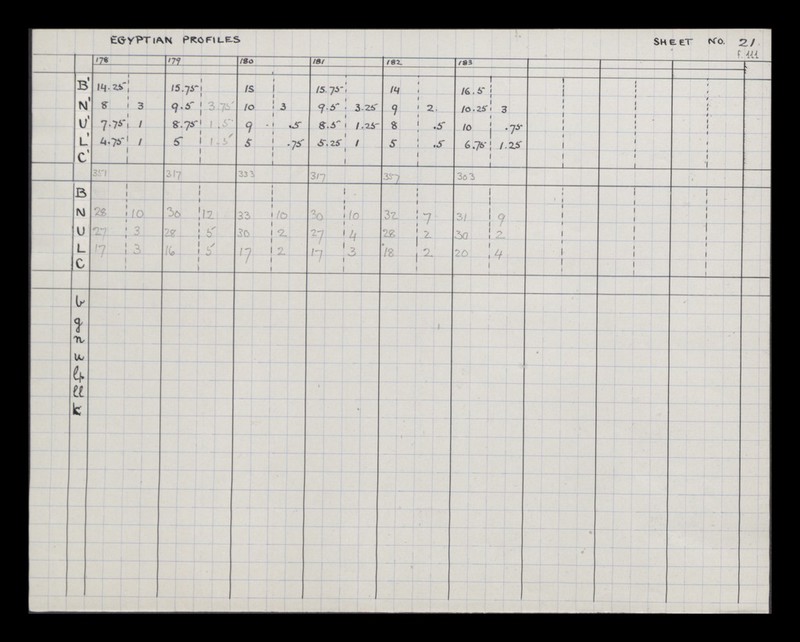 EGYPTIAN PROFILES SHEET NO. 21.
f. 111
178 179 180 181 182 183
B' 14.25 15.75 15 15.75 14 16.5
N' 8 3 9.5 3.75 10 3 9.5 3.25 9 2. 10.25 3
U' 7.75 1 8.75 1.5 9 .5 8.5 1.25 8 .5 10 .75
L' 4.75 1 5 1.5 5 .75 5.25 1 5 .5 6.75 1.25
C'
351 317 333 317 357 303
B
N 28 10 30 12 33 10 30 10 32 7 31 9
U 27 3 28 5 30 2 27 4 28 2 30 2
L 17 3 16 5 17 2 17 3 18 2 20 4
C
b
g
n
u
ll
k